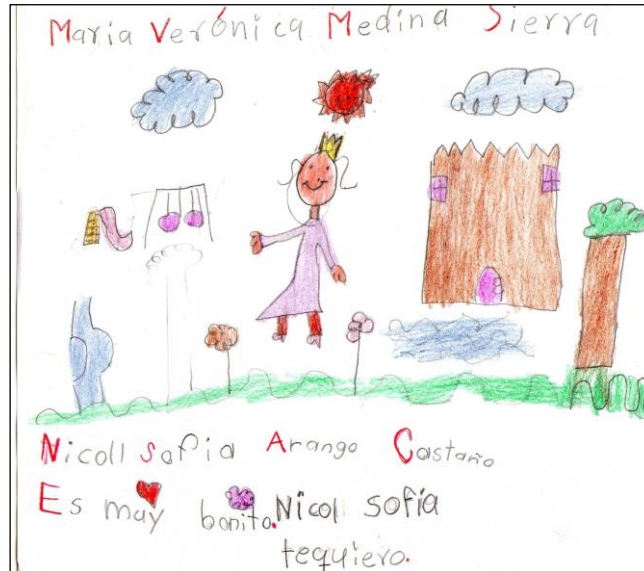 Maria Verónica Medina Sierra
Nicoll Sofia Arango Castaño
Es muy bonito. Nicol sofía
tequiero.